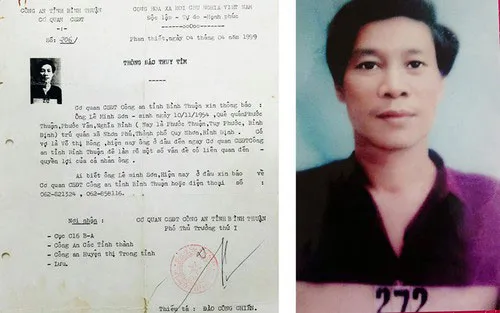 CÔNG AN TỈNH BÌNH THUẬN
CƠ QUAN CSĐT
Số: 706/
CỘNG HÒA XÃ HỘI CHỦ NGHĨA VIỆT NAM
Độc lập - Tự do - Hạnh phúc
Phan thiết, ngày 04 tháng 04 năm 1999
THÔNG BÁO TRUY TÌM
Cơ quan CSĐT Công an tỉnh Bình Thuận xin thông báo :
Ông Lê Minh Sơn - sinh ngày 10/11/1954 ,Quê quán Phước
Thuận,Phước Vân,Nghĩa Bình ( Nay là Phước Thuận,Tuy Phước, Bình
Định) trú quán xã Nhơn Phú,Thành phố Quy Nhơn,Bình Định. Có
vợ là Võ thị Bông ,Hiện nay ông ở đâu đến ngay Cơ quan CSĐTCông
an tỉnh Bình Thuận để làm rõ một số vấn đề có liên quan đến -
quyền lợi của cá nhân ông .
Ai biết ông Lê minh Sơn,Hiện nay ở đâu xin báo về
Cơ quan CSĐT Công an tỉnh Bình Thuận hoặc điện thoại số :
062-821324 ,062-858116.
Nơi nhận :
- Cục C16 B-A
- Công An Các Tỉnh thành
- Công an Huyện thị Trong tỉnh
- Lưu.
CƠ QUAN CSĐT CÔNG AN TỈNH BÌNH THUẬN
Phó Thủ Trưởng thứ I
Thiếu tá : ĐÀO CÔNG CHIẾN.
272